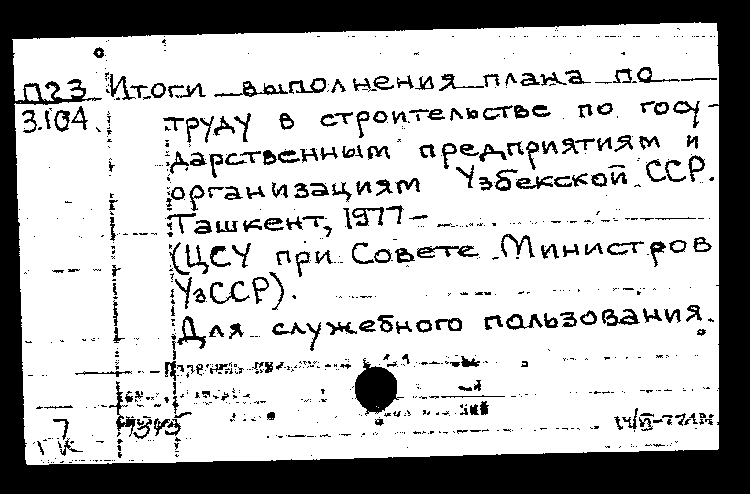 П23 Итоги выполнения плана по
3.104 труду в строительстве по госу-
дарственным предприятиям и
организациям Узбекской ССР.
Ташкент, 1977-
(ЦСУ при Совете Министров
УзССР).
Для служебного пользования.